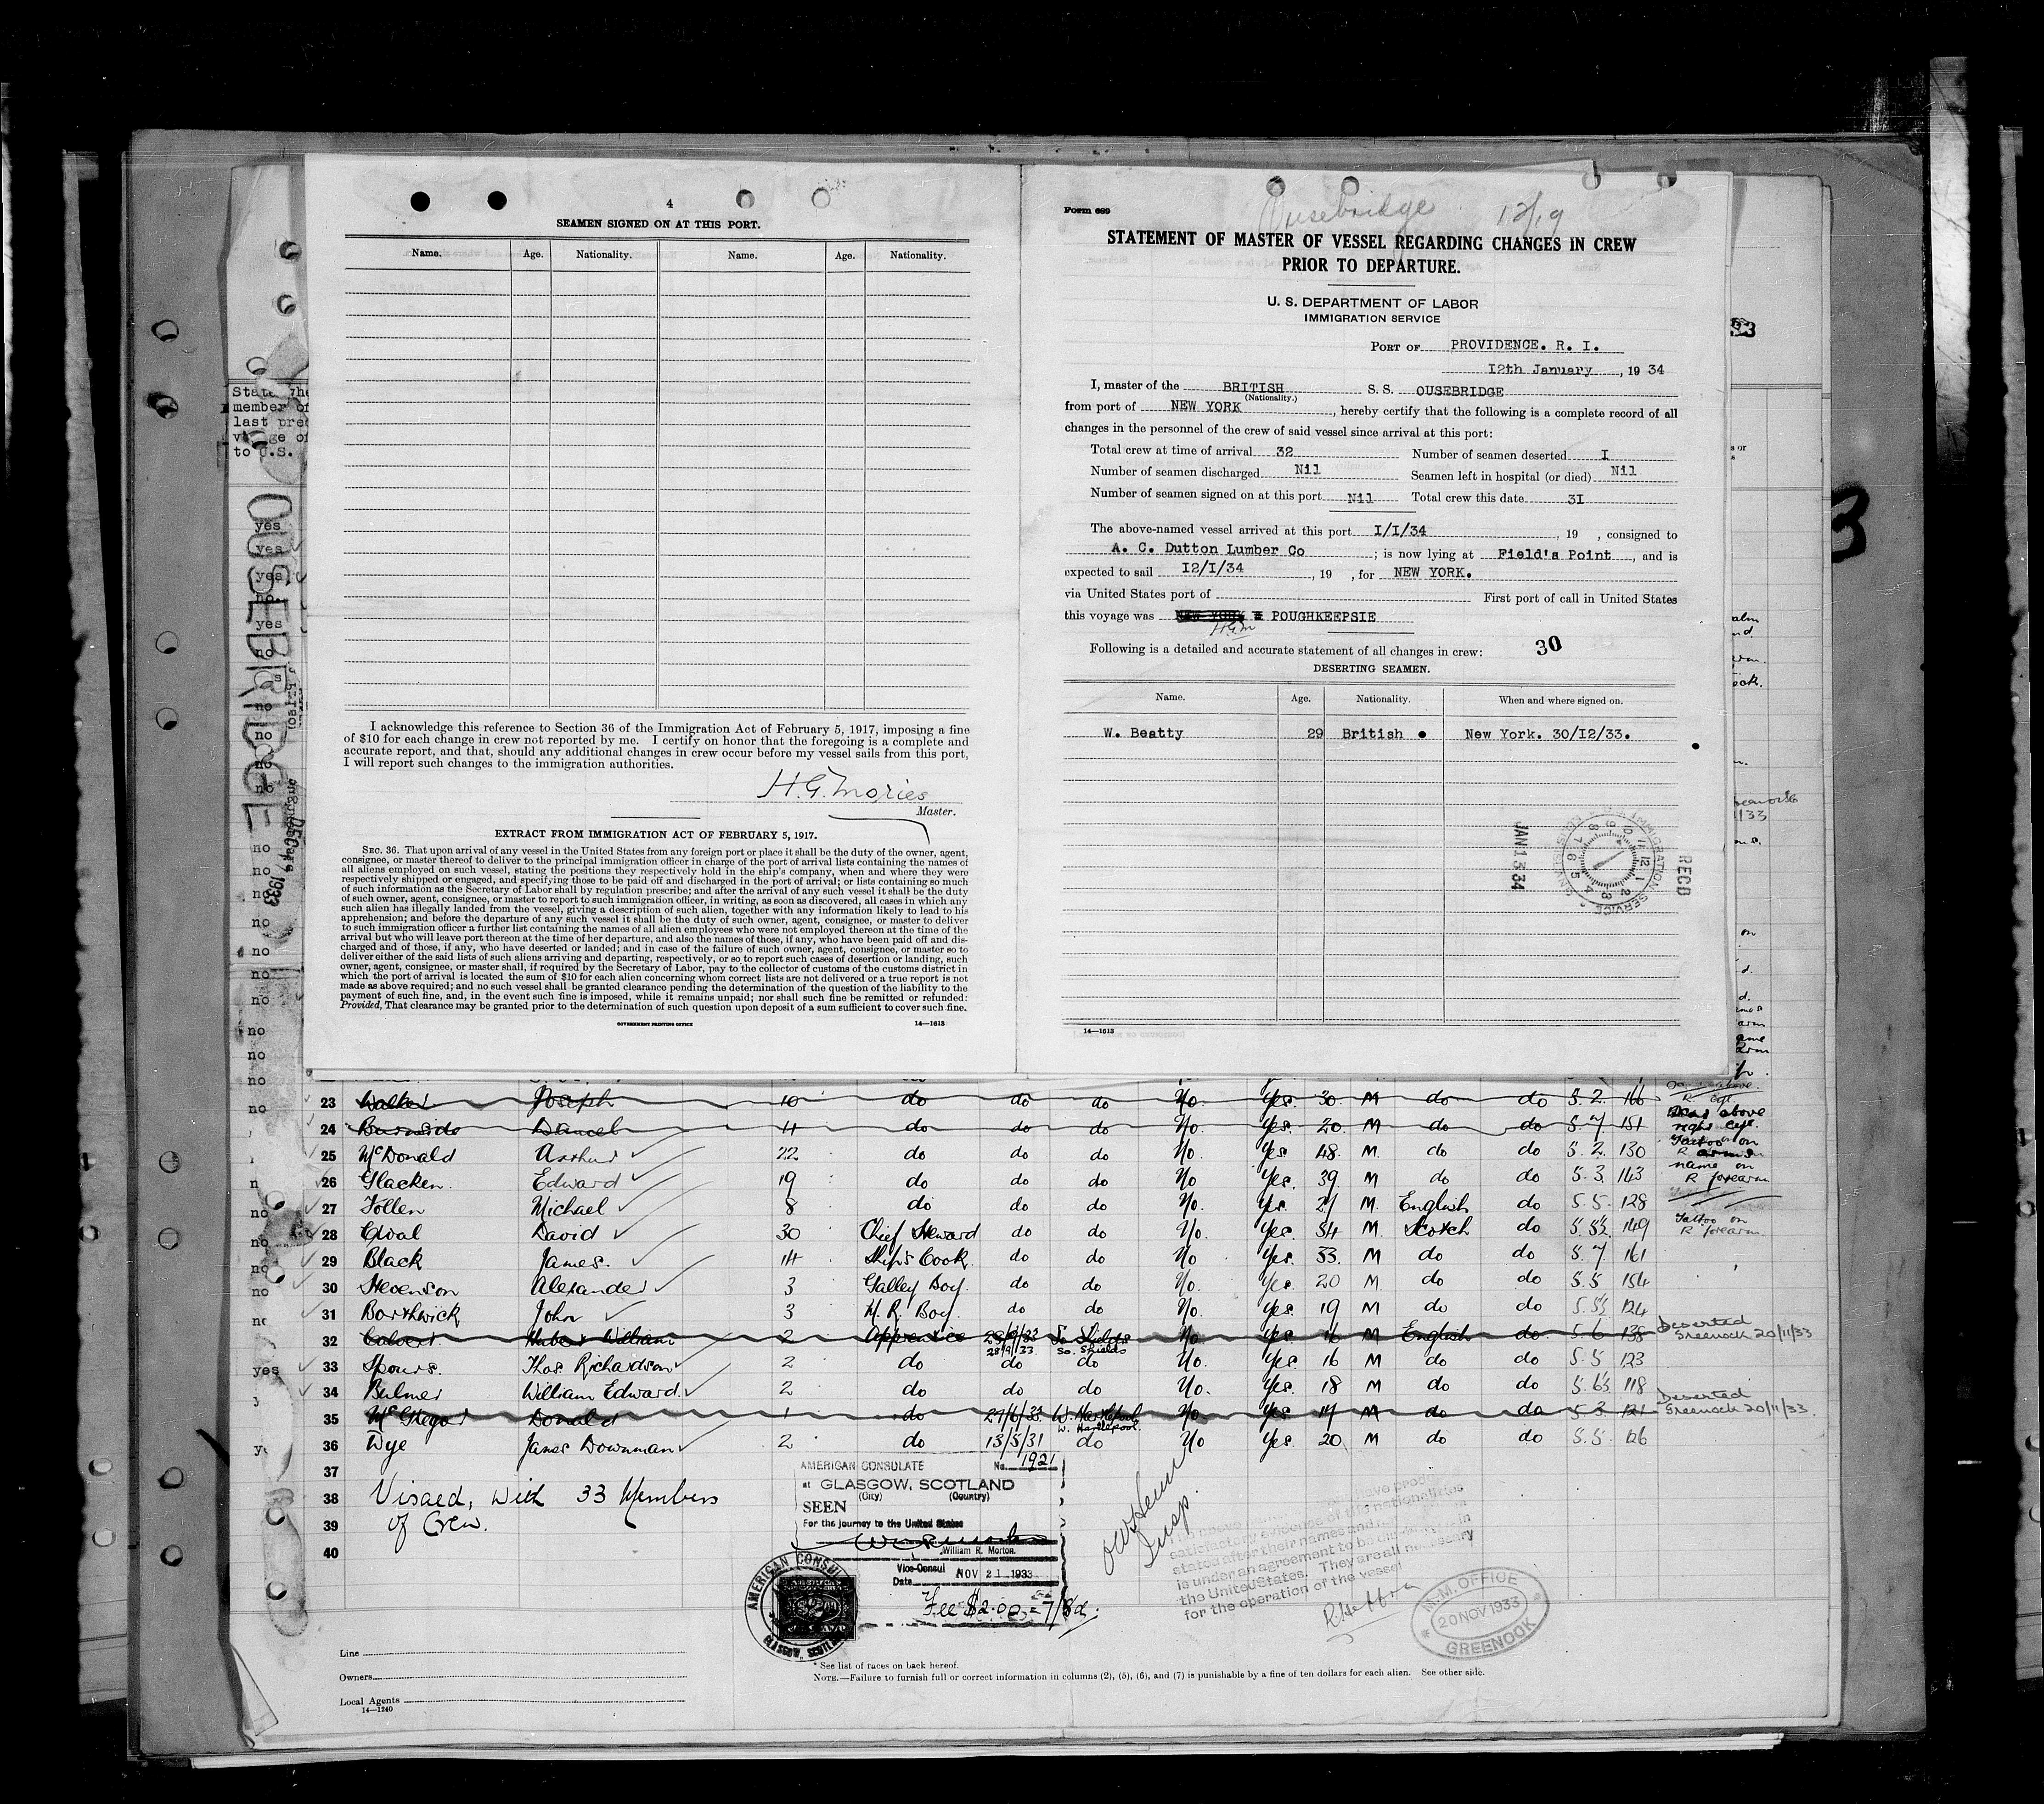 4
SEAMEN SIGNED ON AT THIS PORT.
Name. Age. Nationality. Name. Age. Nationality.
I acknowledge this reference to Section 36 of the Immigration Act of February 5, 1917, imposing a fine
of $10 for each change in crew not reported by me. I certify on honor that the foregoing is a complete and
accurate report, and that, should any additional changes in crew occur before my vessel sails from this port,
I will report such changes to the immigration authorities.
H.G. Mories
Master.
EXTRACT FROM IMMIGRATION ACT OF FEBRUARY 5, 1917.
SEC. 36. That upon arrival of any vessel in the United States from any foreign port or place it shall be the duty of the owner, agent,
consignee, or master thereof to deliver to the principal immigration officer in charge of the port of arrival lists containing the names of
all aliens employed on such vessel, stating the positions they respectively hold in the ship's company, when and where they were
respectively shipped or engaged, and specifying those to be paid off and discharged in the port of arrival; or lists containing so much
of such information as the Secretary of Labor shall by regulation prescribe; and after the arrival of any such vessel it shall be the duty
of such owner, agent, consignee, or master to report to such immigration officer, in writing, as soon as discovered, all cases in which any
such alien has illegally landed from the vessel, giving a description of such alien, together with any information likely to lead to his
apprehension; and before the departure of any such vessel it shall be the duty of such owner, agent, consignee, or master to deliver
to such immigration officer a further list containing the names of all alien employees who were not employed thereon at the time of the
arrival but who will leave port thereon at the time of her departure, and also the names of those, if any, who have been paid off and dis-
charged and of those, if any, who have deserted or landed; and in case of the failure of such owner, agent, consignee, or master so to
deliver either of the said lists of such aliens arriving and departing, respectively, or so to report such cases of desertion or landing, such
owner, agent, consignee, or master shall, if required by the Secretary of Labor, pay to the collector of customs of the customs district in
which the port of arrival is located the sum of $10 for each alien concerning whom correct lists are not delivered or a true report is not
made as above required; and no such vessel shall be granted clearance pending the determination of the question of the liability to the
payment of such fine, and, in the event such fine is imposed, while it remains unpaid; nor shall such fine be remitted or refunded:
Provided, That clearance may be granted prior to the determination of such question upon deposit of a sum sufficient to cover such fine.
GOVERNMENT PRINTING OFFICE 14—1613
Form 689
Ousebridge 12/19
STATEMENT OF MASTER OF VESSEL REGARDING CHANGES IN CREW
PRIOR TO DEPARTURE.
U. S. DEPARTMENT OF LABOR
IMMIGRATION SERVICE
PORT OF PROVIDENCE. R. I.
I2th January, 19 34
I, master of the BRITISH S.S. OUSEBRIDGE
(Nationality.)
from port of NEW YORK, hereby certify that the following is a complete record of all
changes in the personnel of the crew of said vessel since arrival at this port:
Total crew at time of arrival 32 Number of seamen deserted I
Number of seamen discharged Nil Seamen left in hospital (or died) Nil
Number of seamen signed on at this port Nil Total crew this date 3I
The above-named vessel arrived at this port I/I/34, 19 , consigned to
A. C. Dutton Lumber Co ; is now lying at Field's Point, and is
expected to sail I2/I/34, 19 , for NEW YORK.
via United States port of First port of call in United States
this voyage was NEW YORK & POUGHKEEPSIE
HGM
Following is a detailed and accurate statement of all changes in crew: 30
DESERTING SEAMEN.
Name. Age. Nationality. When and where signed on.
W. Beatty 29 British New York. 30/I2/33.
JAN 13 34
IMMIGRATION SERVICE
RECD
14—1613
State whe
member of
last pre
to U.S.
OUSEBRIDGE
23 Walker Joseph 10 do do do No. Yes. 30. M do do 5.2. 166
24 Burnside Daniel 11 do do do No. Yes. 20. M do do 5.7 151 Scar above right eye.
25 McDonald Arthur 22 do do do No. Yes 48. M. do do 5.2. 130 Tattoo on R arm
26 Glacken. Edward 19 do do do No Yes. 39 M do do 5.3. 143 name on R forearm
27 Follen Michael 8 do do do No. Yes. 21 M. English do 5.5. 128
28 Coval David 30 Chief Steward do do No. Yes. 54 M. Scotch do 5.5½ 149 Tattoo on R forearm
29 Black James. 14 Ship's Cook do do No Yes. 33. M do do 5.7 161
30 Stevenson Alexander 3 Galley Boy. do do No. Yes. 20 M. do do 5.5 154
31 Borthwick John 3 M. R. Boy do do No. Yes. 19 M do do 5.5½ 124
32 Calvert Hubert William 2 Apprentice 28/9/33 So. Shields No Yes 16 M English do 5.6 138 Deserted Greenock 20/11/33
28/9/33 So. Shields
33 Spours. Thos Richardson 2 do do do No. Yes. 16 M do do 5.5 123
34 Bulmer William Edward. 2 do do do No. Yes. 18 M do do 5.6½ 118
35 McGregor Donald 1 do 27/6/33 W. Hartlepool No Yes 17 M do do 5.3. 121 Deserted Greenock 20/11/33.
W. Hartlepool.
36 Dye James Downman 2 do 13/5/31 do No Yes. 20 M do do 5.5. 126
37
38 Visaed, with 33 Members
39 of Crew.
40
AMERICAN CONSULATE No. 1921
at GLASGOW, SCOTLAND
(City) (Country)
SEEN
For the journey to the United States
William R. Morton.
Vice-Consul
Date NOV 21 1933
Fee $2.00 = 7/8d.
AMERICAN CONSUL
GLASGOW, SCOTL
Insp.
satisfactory evidence of
stated after their names and
is under an agreement to be
the United States. They are all necessary
for the operation of the vessel
M.M. OFFICE
20 NOV 1933
GREENOCK
Line
Owners
Local Agents
14—1240
* See list of races on back hereof.
NOTE.—Failure to furnish full or correct information in columns (2), (5), (6), and (7) is punishable by a fine of ten dollars for each alien. See other side.